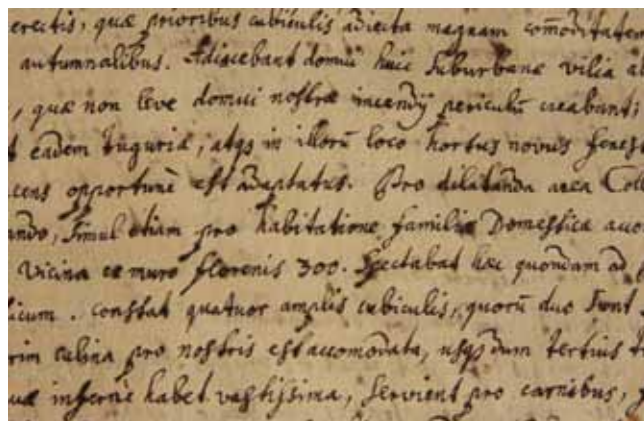 erectis, quæ prioribus cubiculis adiecta magnam com̄oditatem
autumnalibus. Adiacebant domui huic suburbanæ vilia
, quæ non leve domui nostræ incendij periculū creabant;
eadem tuguria, atqs in illorū loco hortus novus
opportunè est adaptatus. Pro dilatanda area
simul etiam pro habitatione familiæ Domesticæ
vicina ex muro florenis 300. Spectabat hæc quondam ad
constat quatuor amplis cubiculis, quorū duo sunt
culina pro nostris est accomodata, usqs dum tertius
infernè habet vastissima, servient pro carnibus,